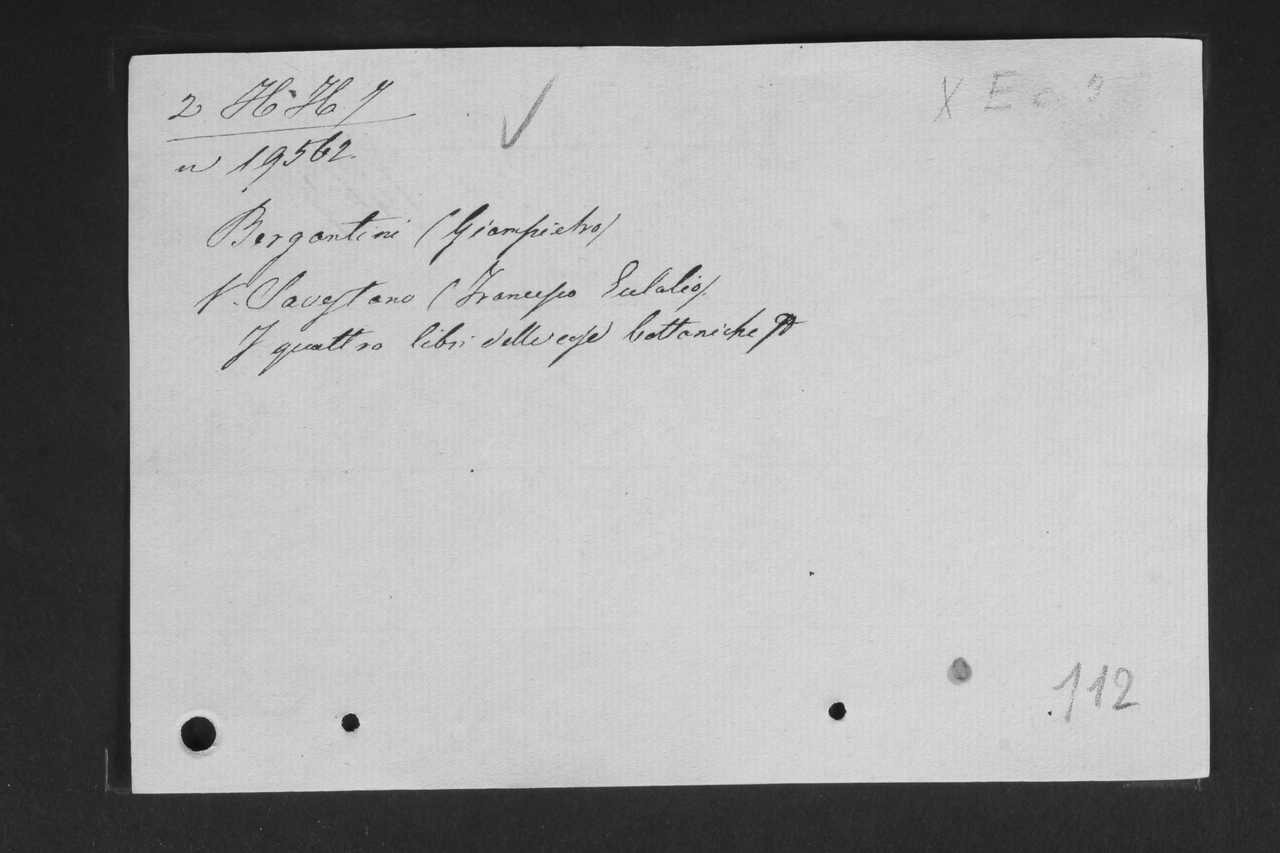 2 H·H 7
X E 3
n 19562.
Bergantini (Giampietro)
V. Savastano (Francesco Eulalio).
I quattro libri delle cose bottaniche
112